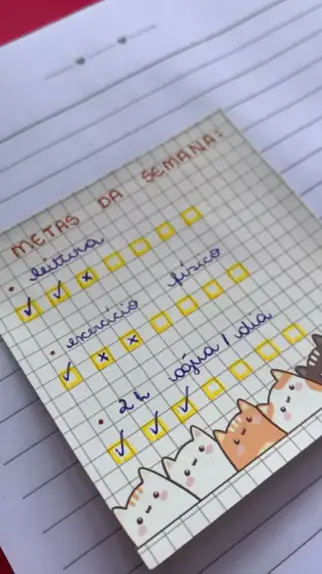 METAS DA SEMANA:
• leitura
✓ ✓ x
• exercício físico
✓ x x
• 2h água / dia
✓ ✓ ✓